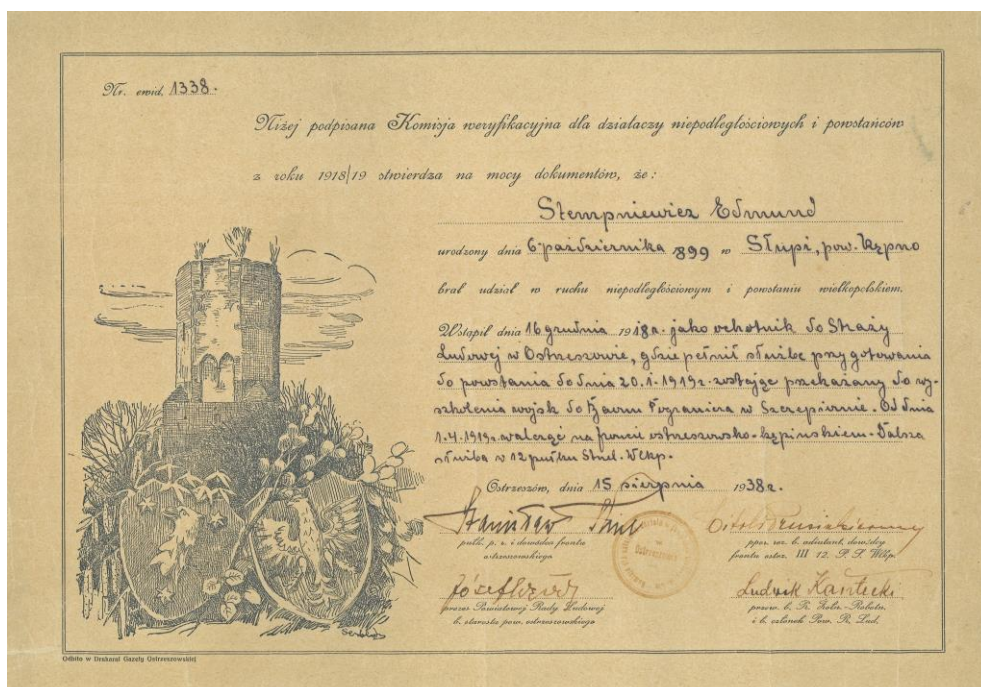 Nr. ewid. 1338.
Niżej podpisana Komisja weryfikacyjna dla działaczy niepodległościowych i powstańców
z roku 1918/19 stwierdza na mocy dokumentów, że:
Stempniewicz Edmund
urodzony dnia 6 października 899 w Słupi, pow. Kępno
brał udział w ruchu niepodległościowym i powstaniu wielkopolskiem.
Wstąpił dnia 16 grudnia 1918r. jako ochotnik do Straży
Ludowej w Ostrzeszowie, gdzie pełnił służbę przygotowania
do powstania do dnia 20.1.1919r. zostając przekazany do wy-
szkolenia wojsk. do Pogranicza w Szczepiornie. Od dnia
1.4.1919r. walczył na froncie ostrzeszowsko-kępińskiem. Dalsza
służba w 12 pułku Strzel. Wlkp.
Ostrzeszów, dnia 15 sierpnia 1938r.
Stanisław
pułk. p. r. i dowódca frontu
ostrzeszowskiego
Ostrzeszowie
ppor. rez. b. adiutant, dow. dcy
frontu ostrz. III 12. P. S. Wlkp.
Józef
prezes Powiatowej Rady Ludowej
b. starosta pow. ostrzeszowskiego
Ludwik Kantecki
przew. b. R. Żołn.-Robotn.
i b. członek Pow. R. Lud.
Odbito w Drukarni Gazety Ostrzeszowskiej